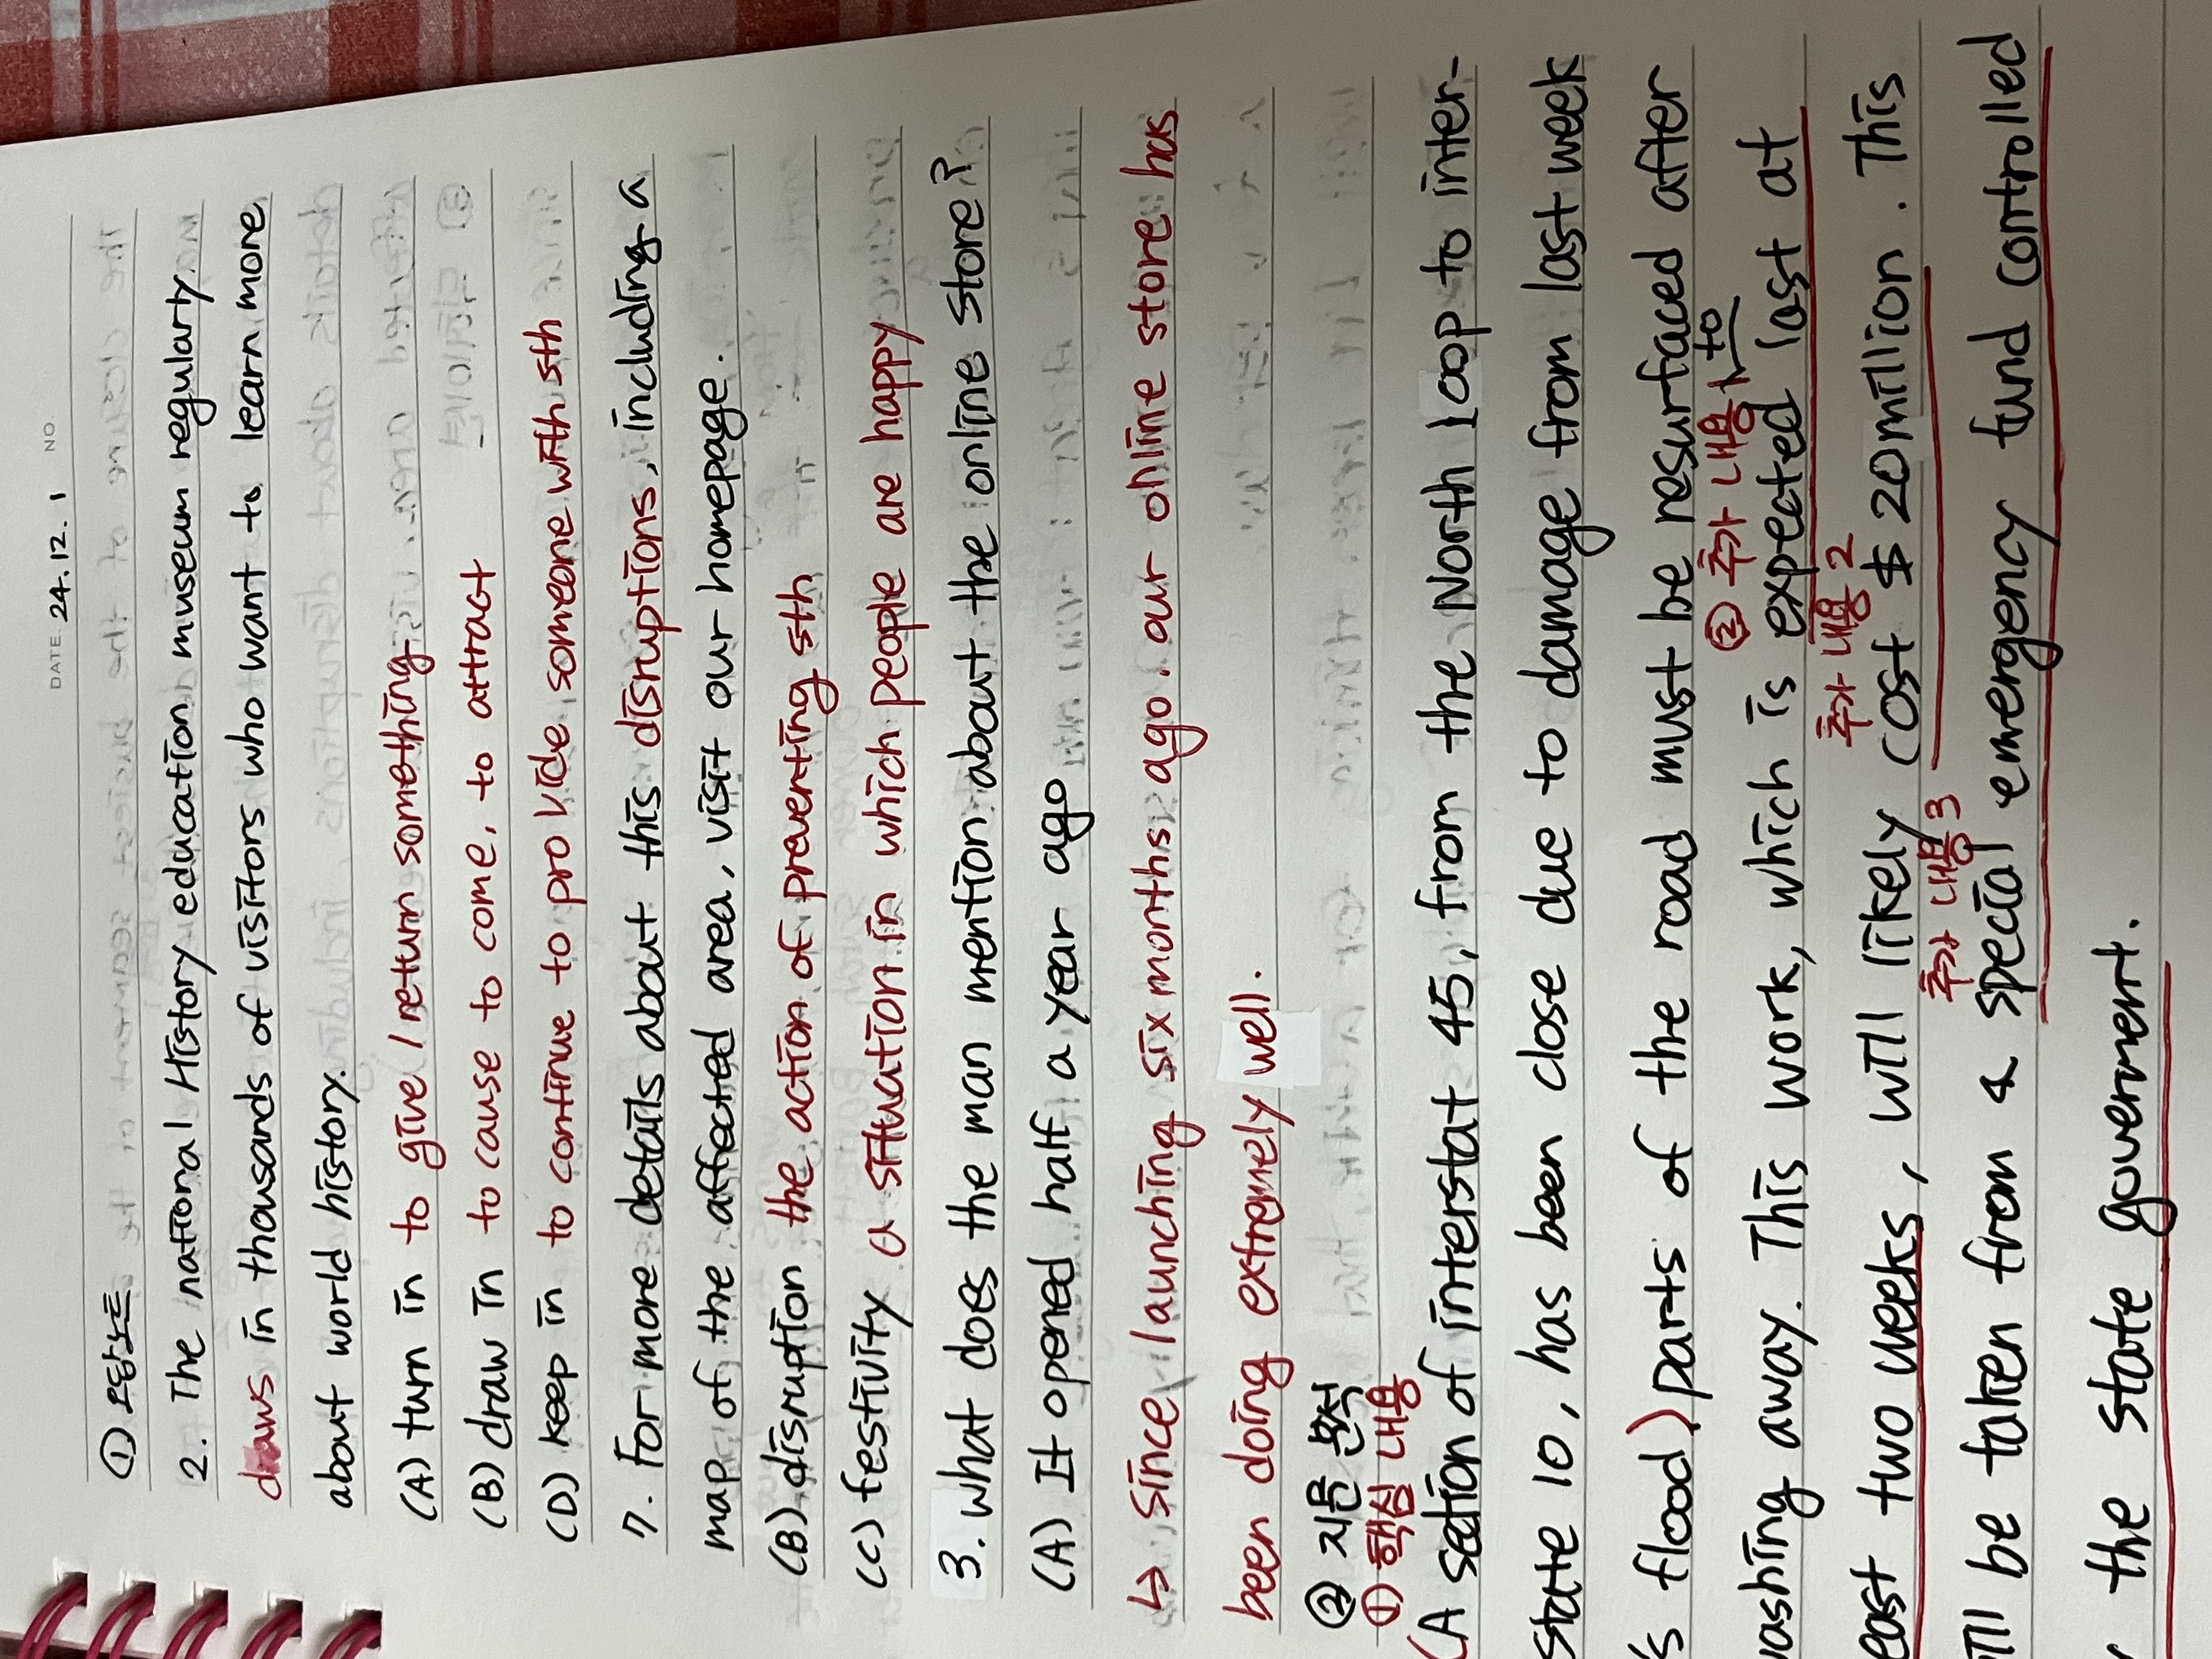 DATE 24.12.1 NO.
① 오답노트
2. The national History education museum regularly
draws in thousands of visitors who want to learn more
about world history.
(A) turn in to give / return something
(B) draw in to cause to come, to attract
(D) keep in to continue to provide someone with sth
7. For more details about this disruptions, including a
map of the affected area, visit our homepage.
(B) disruption the action of preventing sth
(C) festivity a situation in which people are happy
3. what does the man mention about the online store?
(A) It opened half a year ago
↳ Since launching six months ago. our online store has
been doing extremely well.
② 지문 분석
① 핵심 내용
(A section of interstat 45, from the North loop to inter-
state 10, has been close due to damage from last week
's flood) parts of the road must be resurfaced after
② 추가 내용 1 to
washing away. This work, which is expected last at
추가 내용 2
east two weeks, will likely cost $20million. This
추가 내용 3
ill be taken from a special emergency fund controlled
the state government.